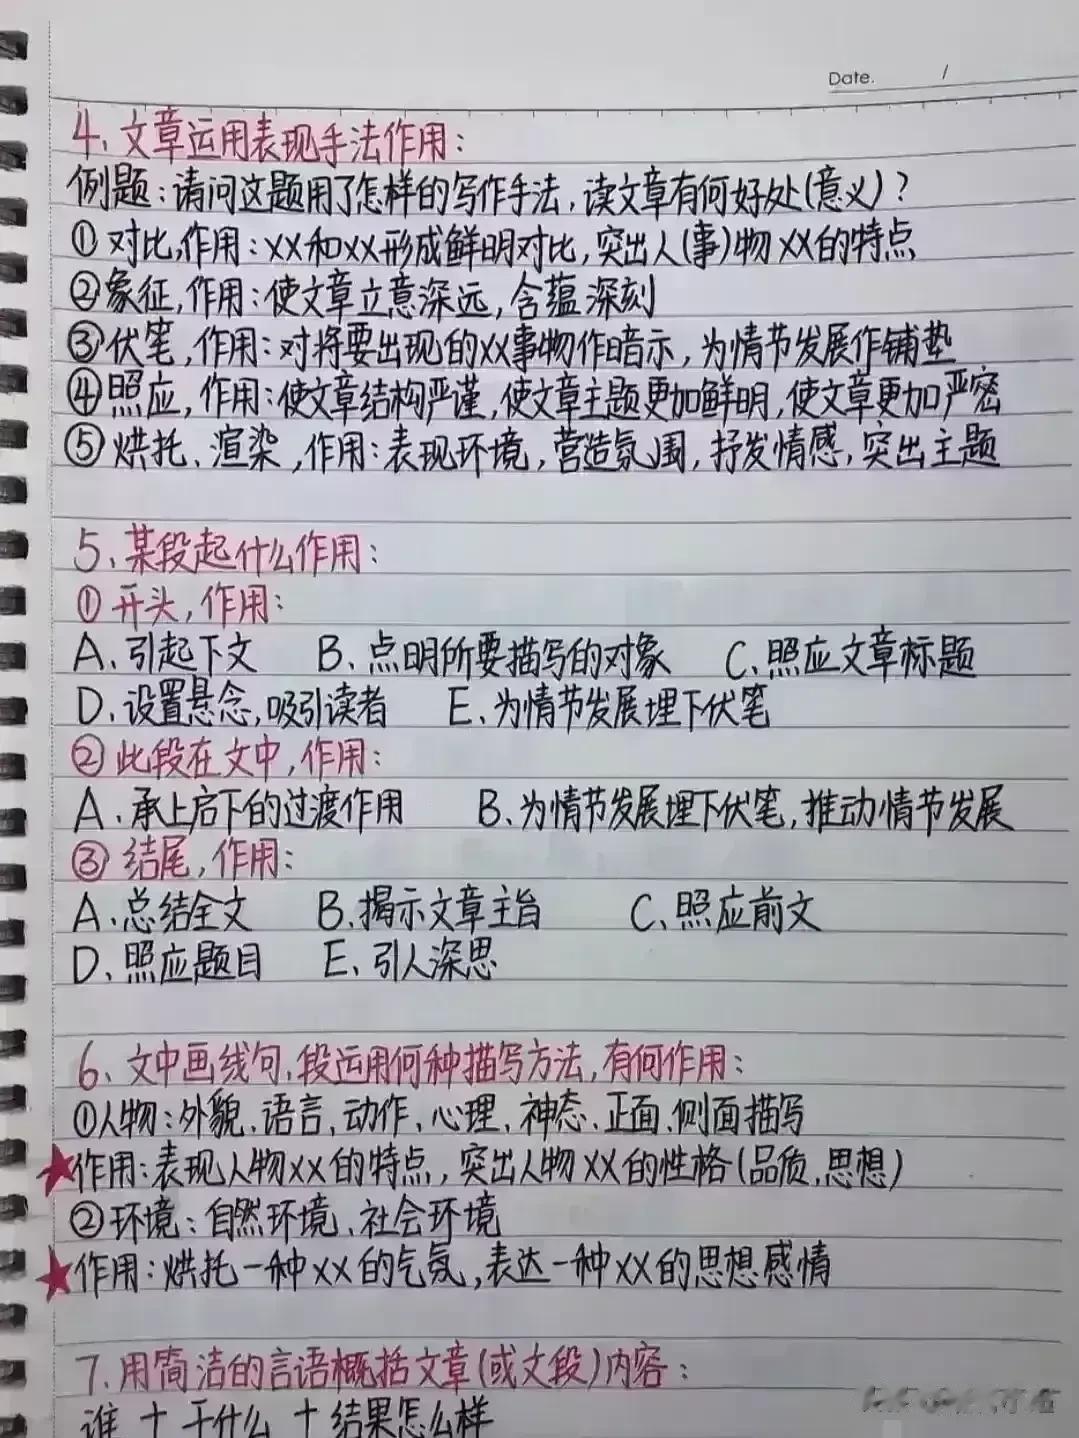 Date.       /
4、文章运用表现手法作用：
例题：请问这题用了怎样的写作手法，读文章有何好处(意义)？
①对比，作用：XX和XX形成鲜明对比，突出人(事)物XX的特点
②象征，作用：使文章立意深远，含蕴深刻
③伏笔，作用：对将要出现的XX事物作暗示，为情节发展作铺垫
④照应，作用：使文章结构严谨，使文章主题更加鲜明，使文章更加严密
⑤烘托、渲染，作用：表现环境，营造氛围，抒发情感，突出主题
5、某段起什么作用：
①开头，作用：
A、引起下文 B、点明所要描写的对象 C、照应文章标题
D、设置悬念，吸引读者 E、为情节发展埋下伏笔
②此段在文中，作用：
A、承上启下的过渡作用 B、为情节发展埋下伏笔，推动情节发展
③结尾，作用：
A、总结全文 B、揭示文章主旨 C、照应前文
D、照应题目 E、引人深思
6、文中画线句、段运用何种描写方法，有何作用：
①人物：外貌、语言、动作、心理、神态、正面、侧面描写
★作用：表现人物XX的特点，突出人物XX的性格(品质、思想)
②环境：自然环境、社会环境
★作用：烘托一种XX的气氛，表达一种XX的思想感情
7、用简洁的言语概括文章(或文段)内容：
谁 + 干什么 + 结果怎么样